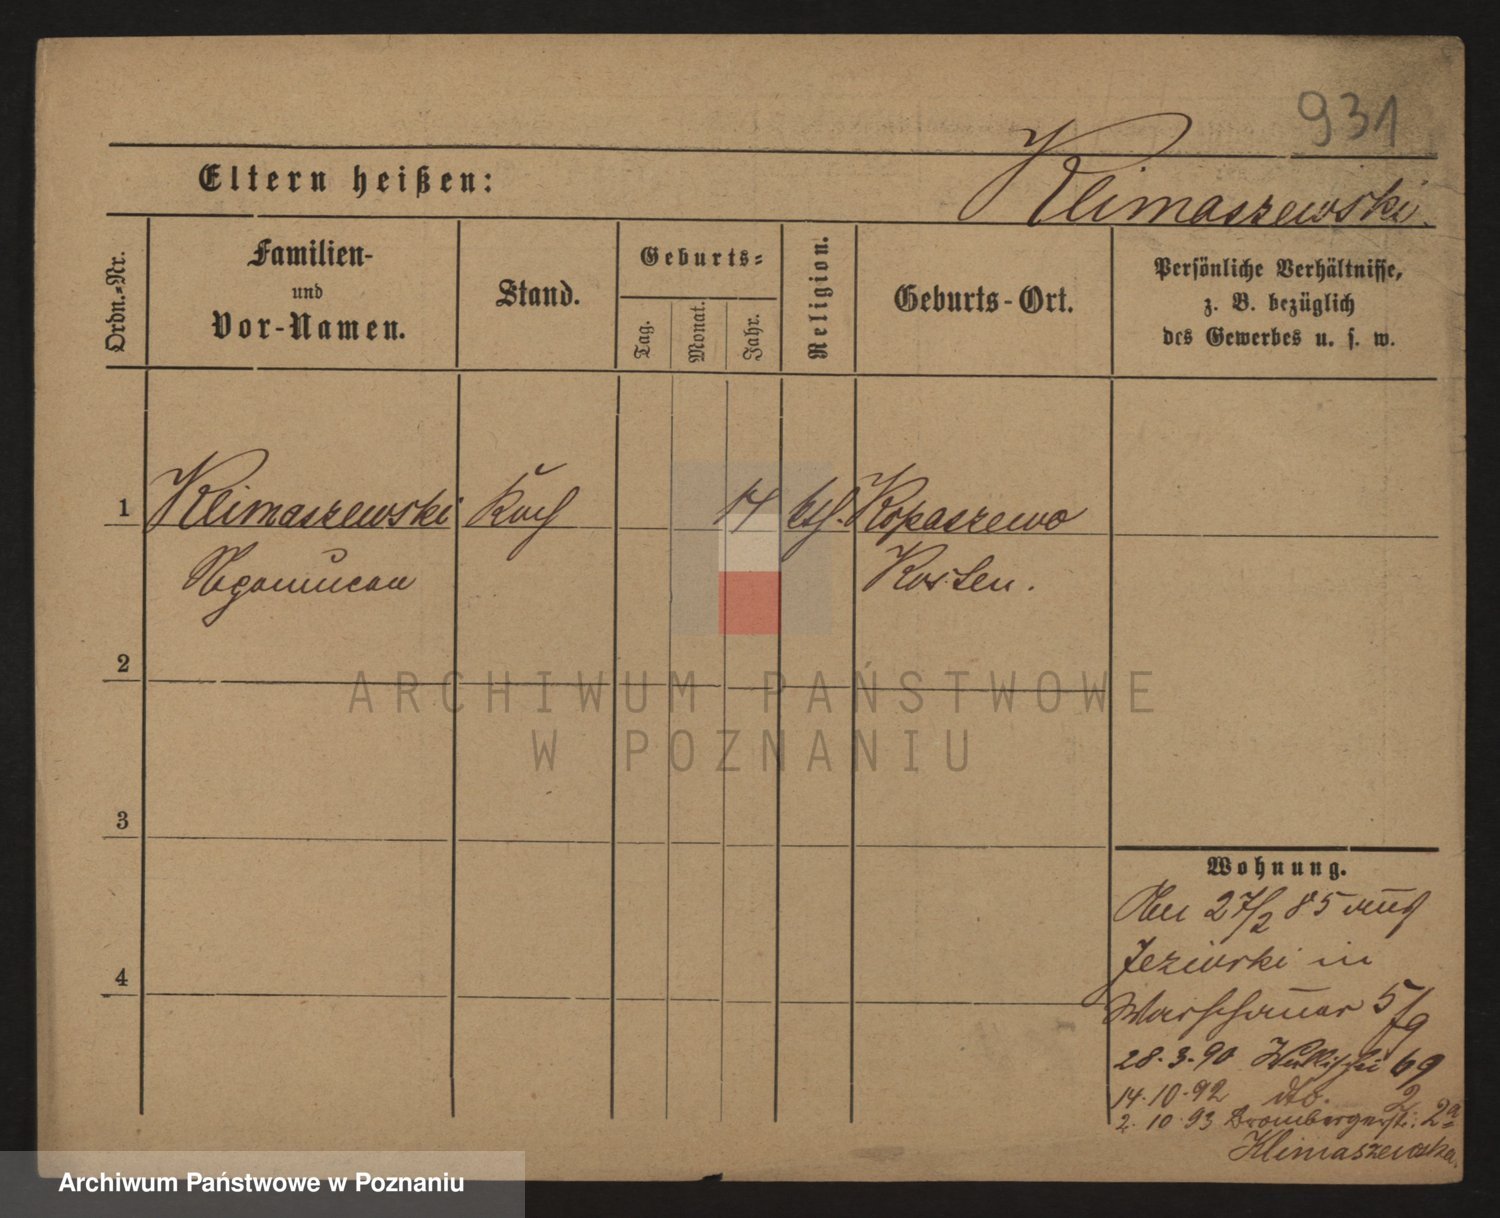 931
Eltern heißen:
Klimaszewski.
Ordn.-Nr.
Familien-
und
Vor-Namen.
Stand.
Geburts-
Tag.
Monat.
Jahr.
Religion.
Geburts-Ort.
Persönliche Verhältnisse,
z. B. bezüglich
des Gewerbes u. s. w.
1 Klimaszewski Koch 14 kth. Kopaszewo
Kosten.
2
3
4
Wohnung.
27/2 85
Jezierski in
Warschauer 5/9
28.3.90 Wallischei 69
14.10.92 dto. 2
2.10.93 Brombergerstr: 2a
Klimaszewska.
ARCHIWUM PAŃSTWOWE
W POZNANIU
Archiwum Państwowe w Poznaniu